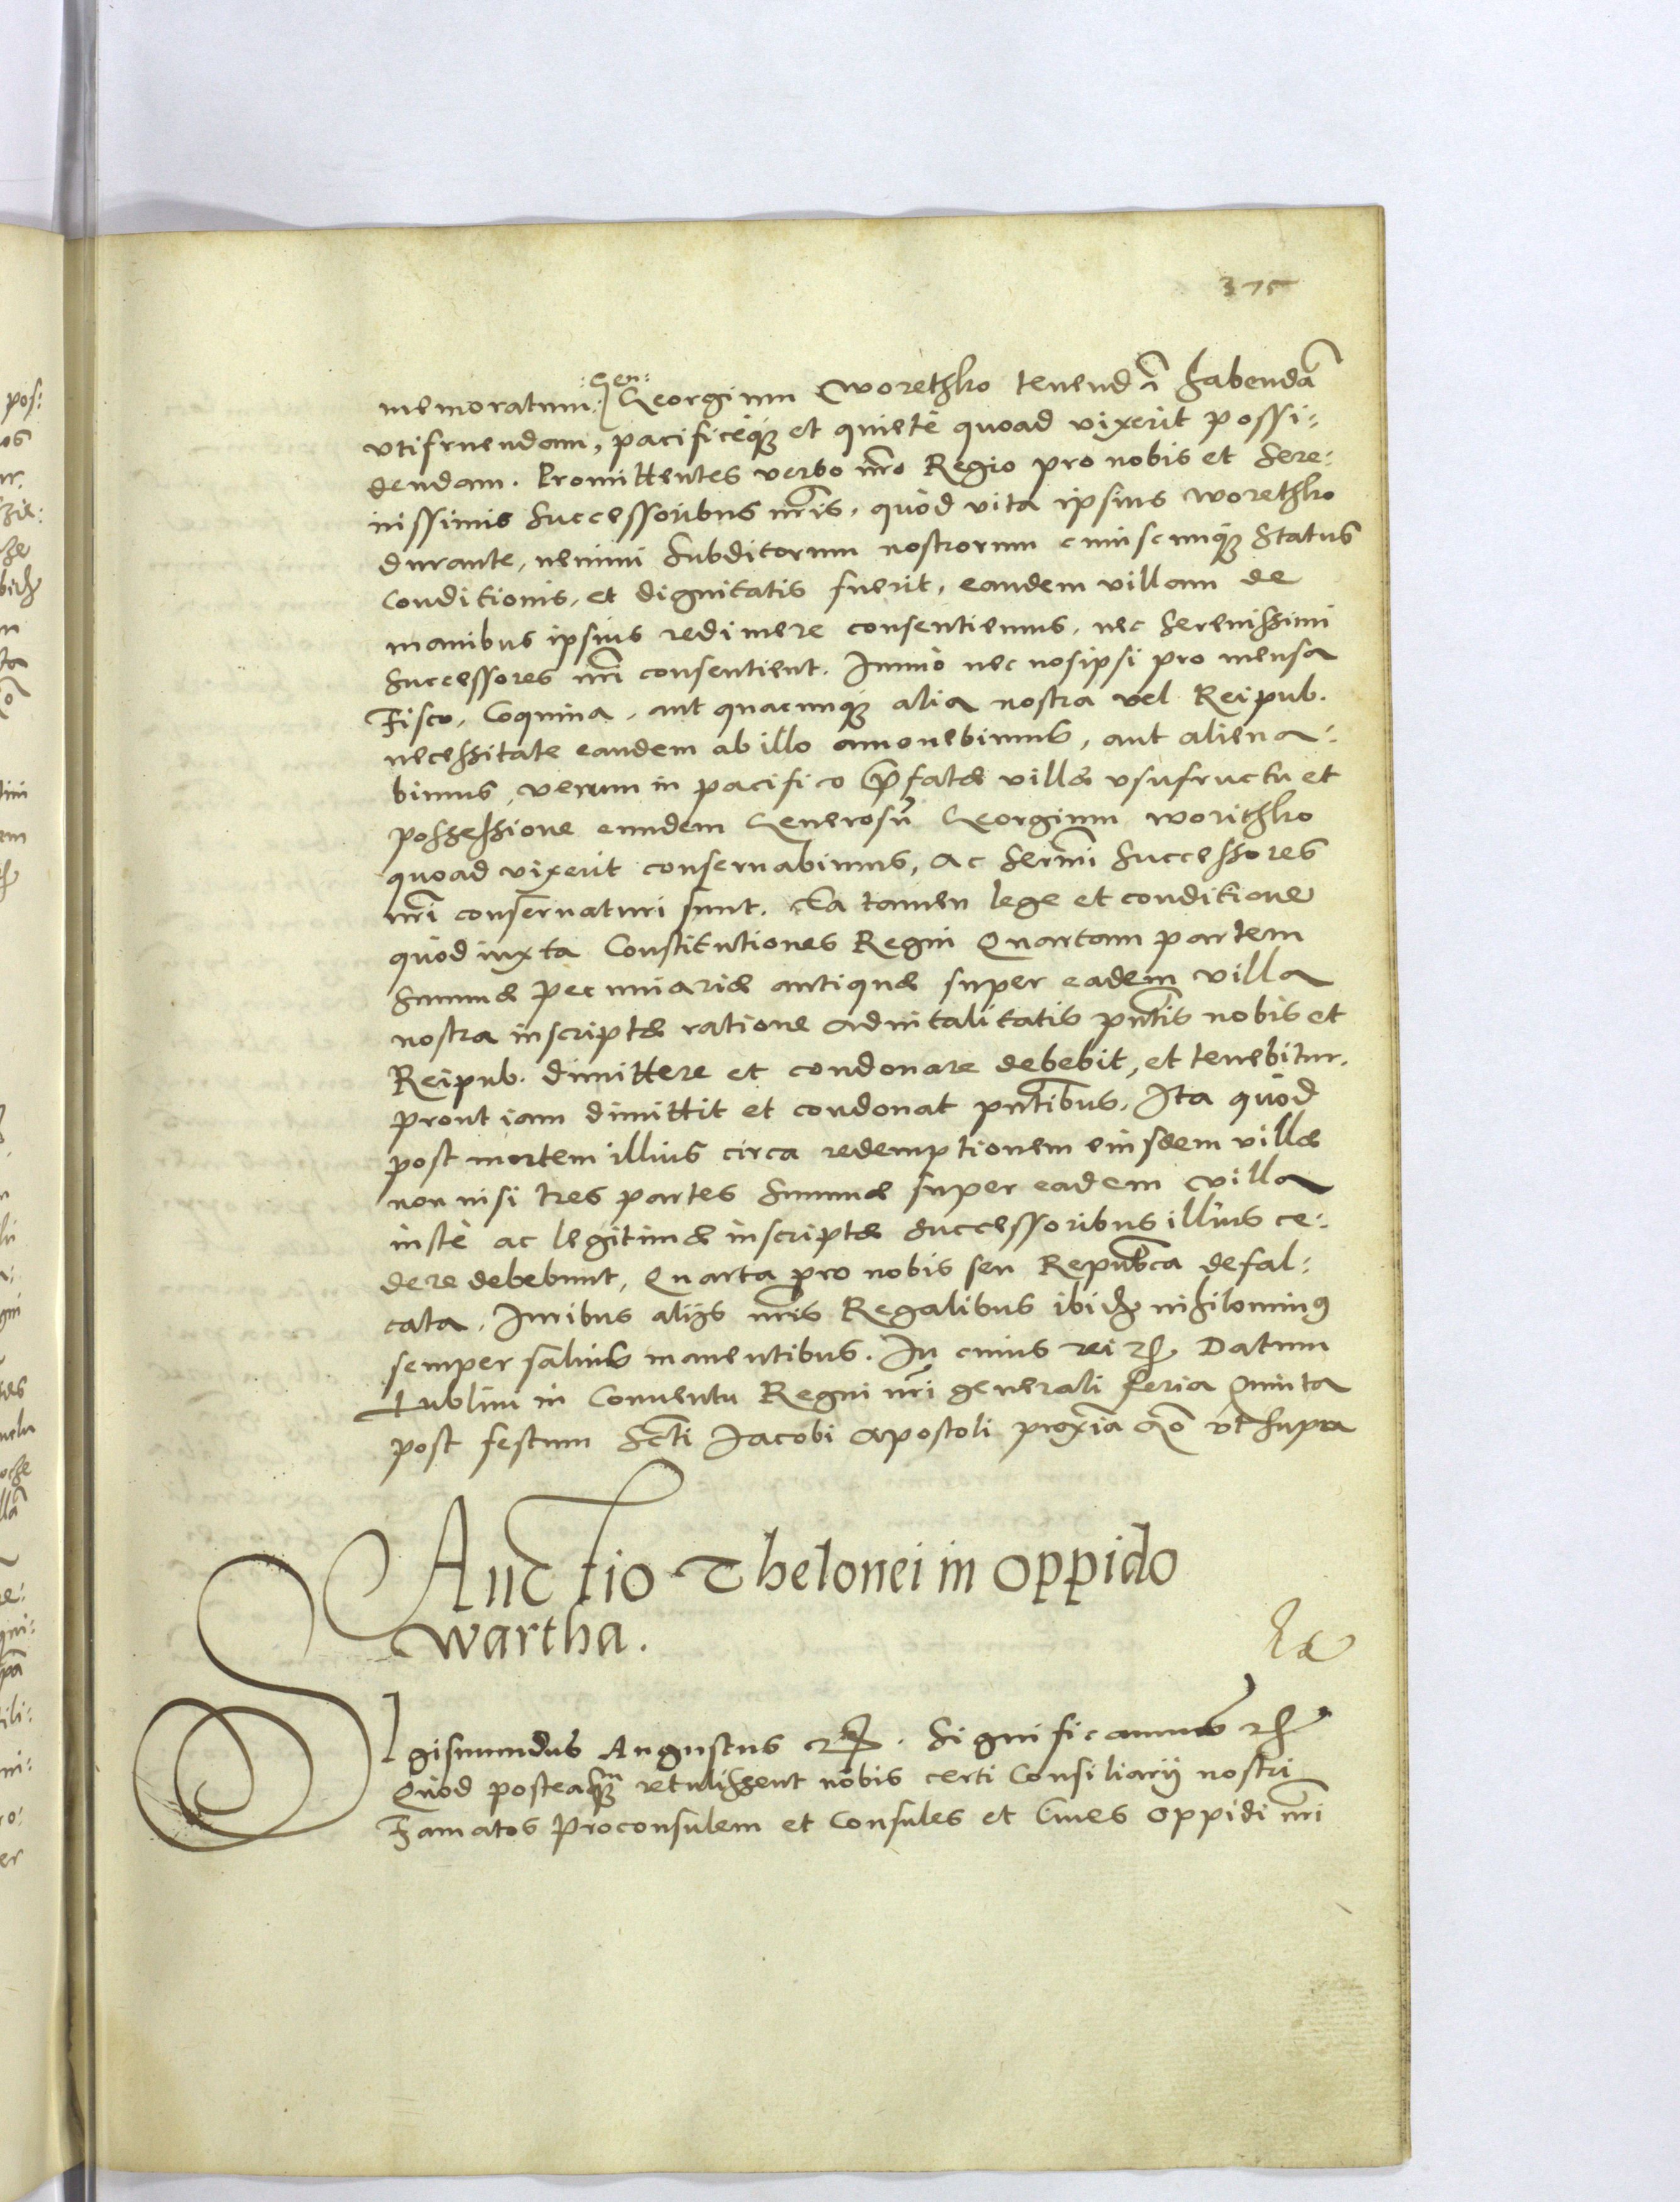 375
memoratum :Gen: Georgium Worethko tenendā habendā
vtifruendam, pacificèq̃ et quietè quoad vixerit possi:
dendam. Promittentes verbo nr̃o Regio pro nobis et Sere:
nissimis Successoribus nr̃is, quòd vita ipsius Worethko
durante, nemini Subditorum nostrorum cuiuscunq̃ Status
Conditionis, et dignitatis fuerit, eandem villam de
manibus ipsius redimere consentiemus, nec Serenissimi
Successores nr̃i consentient. Immò nec nosipsi pro mensa
Fisco, Coquina, aut quacunq̃ alia nostra vel Reipub.
necessitate eandem ab illo amouebimus, aut aliena:
bimus, verum in pacifico p̃fatæ villæ vsufructu et
possessione eundem Generosū Georgium Worithko
quoad vixerit conseruabimus, ac Serm̃i Successores
nr̃i conseruaturi sunt. Ea tamen lege et conditione
quòd iuxta Constitutiones Regni Quartam partem
Summæ pecuniariæ antiquæ super eadem villa
nostra inscriptæ ratione aduitalitatis pñtis nobis et
Reipub. dimittere et condonare debebit, et tenebitur.
prout iam dimittit et condonat pñtibus. Ita quòd
post mortem illius circa redemptionem eiusdem villæ
non nisi tres partes Summæ super eadem villa
iustè ac legitimæ inscriptæ successoribus illius ce:
dere debebunt, Quarta pro nobis seu Repub̃ca defal:
cata. Iuribus alijs nr̃is Regalibus ibid. nihilominus
semper saluis manentibus. In cuius rei etc. Datum
Lublini in Conuentu Regni nr̃i generali feria Quinta
post festum Scti Jacobi Apostoli proxĩa Ao vt supra
Auctio Thelonei in oppido
Wartha.
SIgismundus Augustus etc. Significamus etc
Quòd posteaq̃m retulissent nobis certi Consiliarij nostri
Famatos Proconsulem et Consules et Ciues oppidi nr̃i